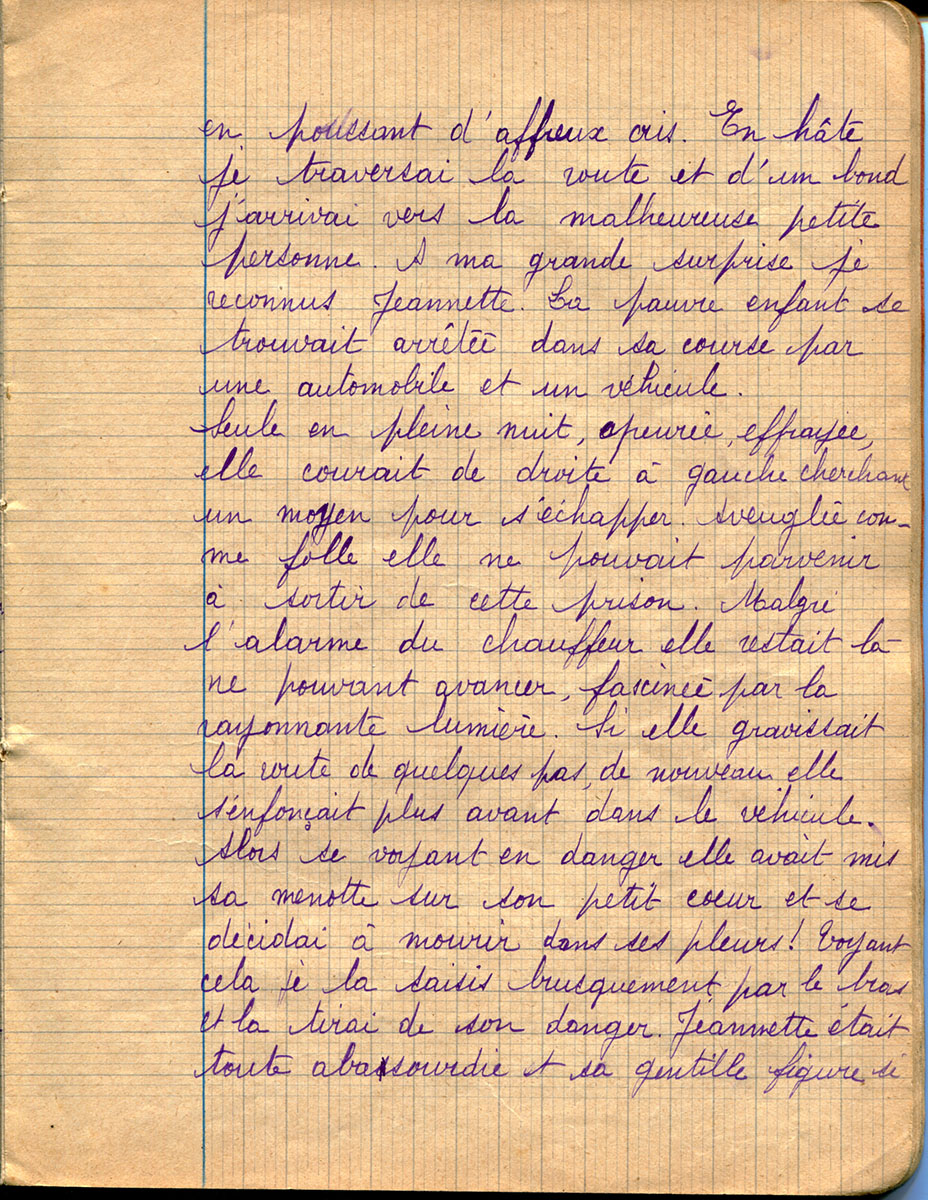 en poussant d'affreux cris. En hâte
je traversai la route et d'un bond
j'arrivai vers la malheureuse petite
personne. A ma grande surprise je
reconnus Jeannette. La pauvre enfant se
trouvait arrêtée dans sa course par
une automobile et un véhicule.
Seule en pleine nuit, apeurée, effrayée,
elle courait de droite à gauche cherchant
un moyen pour s'échapper. Aveuglée com-
me folle elle ne pouvait parvenir
à sortir de cette prison. Malgré
l'alarme du chauffeur elle restait là
ne pouvant avancer, fascinée par la
rayonnante lumière. Si elle gravissait
la route de quelques pas, de nouveau elle
s'enfonçait plus avant dans le véhicule.
Alors se voyant en danger elle avait mis
sa menotte sur son petit coeur et se
décidai à mourir dans ses pleurs! Voyant
cela je la saisis brusquement par le bras
et la tirai de son danger. Jeannette était
toute abasourdie et sa gentille figure si